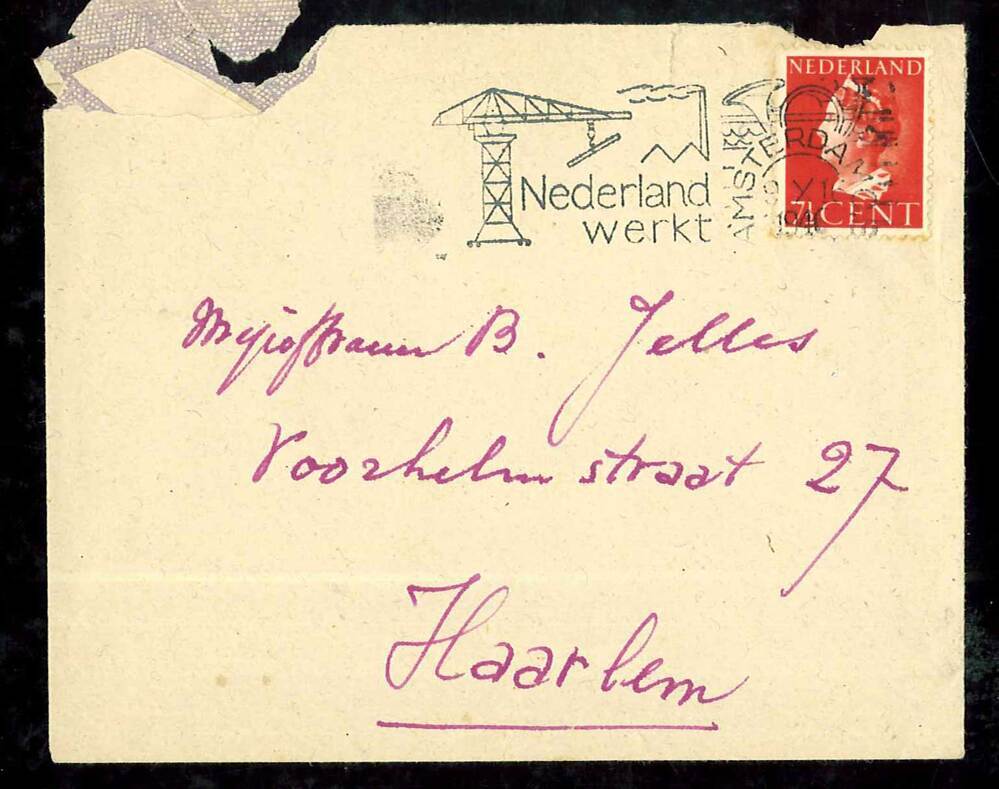 NEDERLAND
7½ CENT
AMSTERDAM
1946
Nederland
werkt
Mejuffrouw B. Jelles
Voorhelmstraat 27
Haarlem